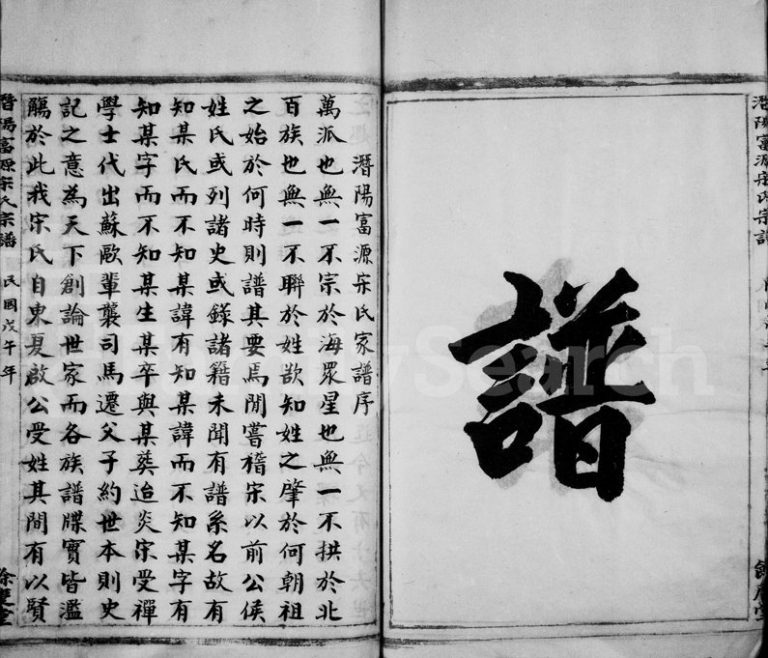 潛陽富源宋氏宗譜
譜
潛陽富源宋氏家譜序
萬派也無一不宗於海眾星也無一不拱於北
百族也無一不聯於姓欲知姓之肇於何朝祖
之始於何時則譜其要焉閒嘗稽宋以前公侯
姓氏或列諸史或錄諸籍未聞有譜系名故有
知某氏而不知某諱有知某諱而不知某字有
知某字而不知某生某卒與某葬迨炎宋受禪
學士代出蘇歐輩襲司馬遷父子約世本則史
記之意為天下創論世家而各族譜牒實皆濫
觴於此我宋氏自東夏啟公受姓其間有以賢
潛陽富源宋氏宗譜 民國戊午年 餘慶堂
Search